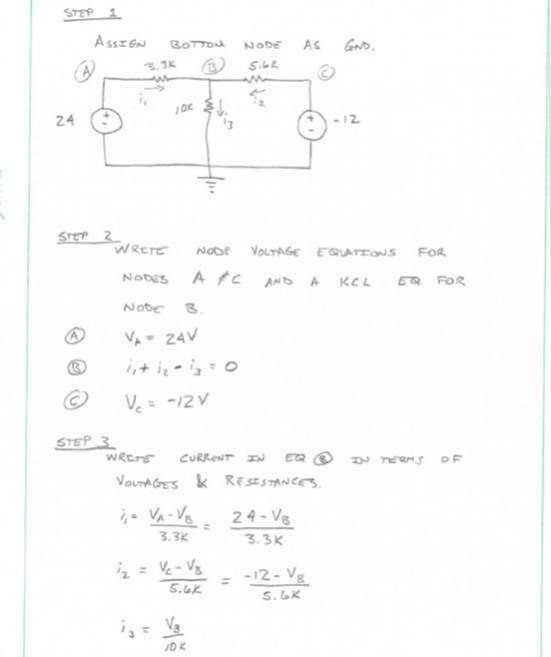 STEP 1
ASSIGN BOTTOM NODE AS GND.
A 3.3K B 5.6K C
i₁ 10K i₃ i₂
24 + - + - -12
STEP 2
WRITE NODE VOLTAGE EQUATIONS FOR
NODES A & C AND A KCL EQ FOR
NODE B.
A V_A = 24V
B i₁ + i₂ - i₃ = 0
C V_C = -12V
STEP 3
WRITE CURRENT IN EQ B IN TERMS OF
VOLTAGES & RESISTANCES.
i₁ = (V_A - V_B)/3.3K = (24 - V_B)/3.3K
i₂ = (V_C - V_B)/5.6K = (-12 - V_B)/5.6K
i₃ = V_B/10K